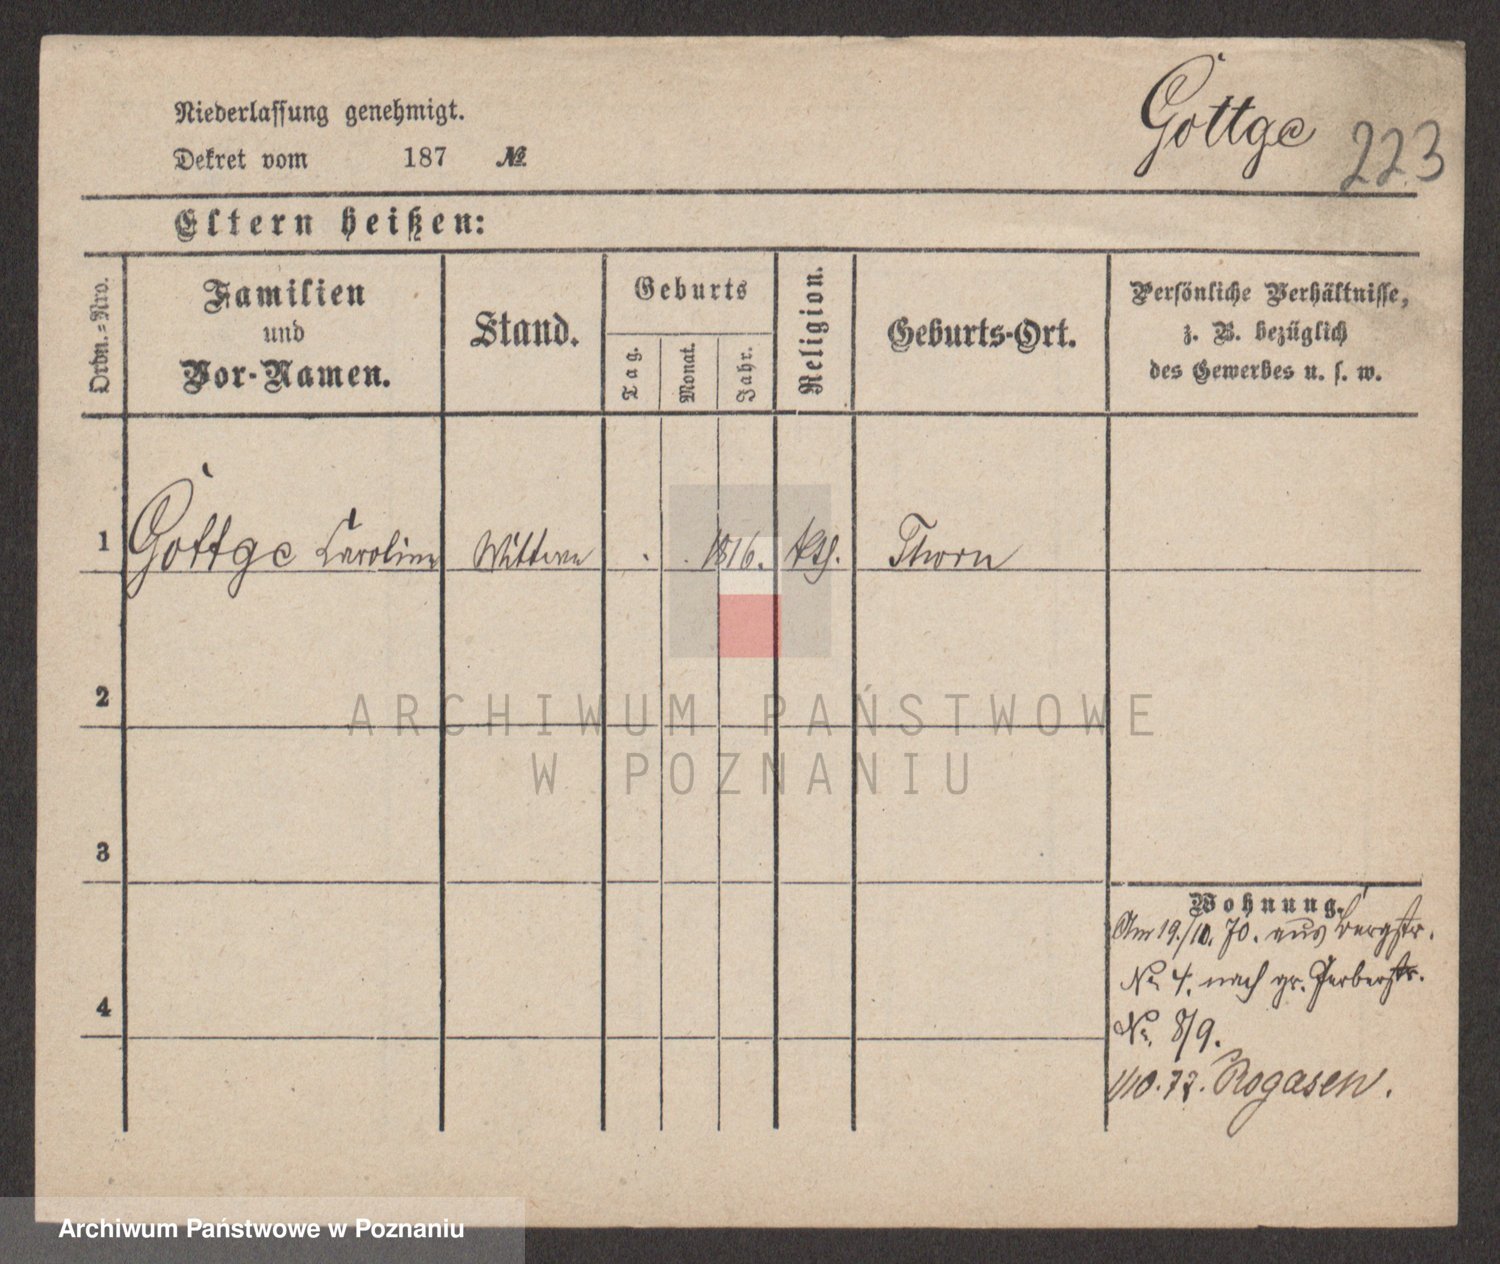 Niederlassung genehmigt.
Dekret vom 187 №
Gottge 223
Eltern heißen:
Ordn.=Nro.
Familien
und
Vor-Namen.
Stand.
Geburts
Tag.
Monat.
Jahr.
Religion.
Geburts-Ort.
Persönliche Verhältnisse,
z. B. bezüglich
des Gewerbes u. s. w.
1 Gottge Caroline Wittwe . . 1816. kth. Thorn
2
3
4
Wohnung.
Am 19./10. 70. aus Bergstr.
No 4. nach gr. Gerberstr.
No. 8/9.
1/10. 72. Rogasen.
ARCHIWUM PAŃSTWOWE
W POZNANIU
Archiwum Państwowe w Poznaniu